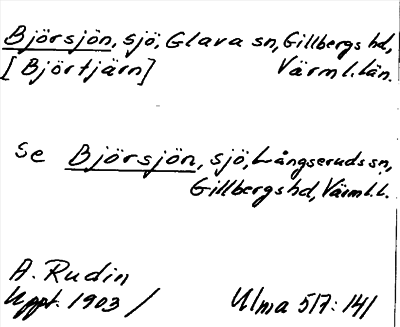 Björsjön, sjö, Glava sn, Gillbergs hd,
[Björtjärn] Värml. län.
Se Björsjön, sjö, Långseruds sn,
Gillbergs hd, Värml.l.
A. Rudin
Uppt. 1903 / Ulma 517:141